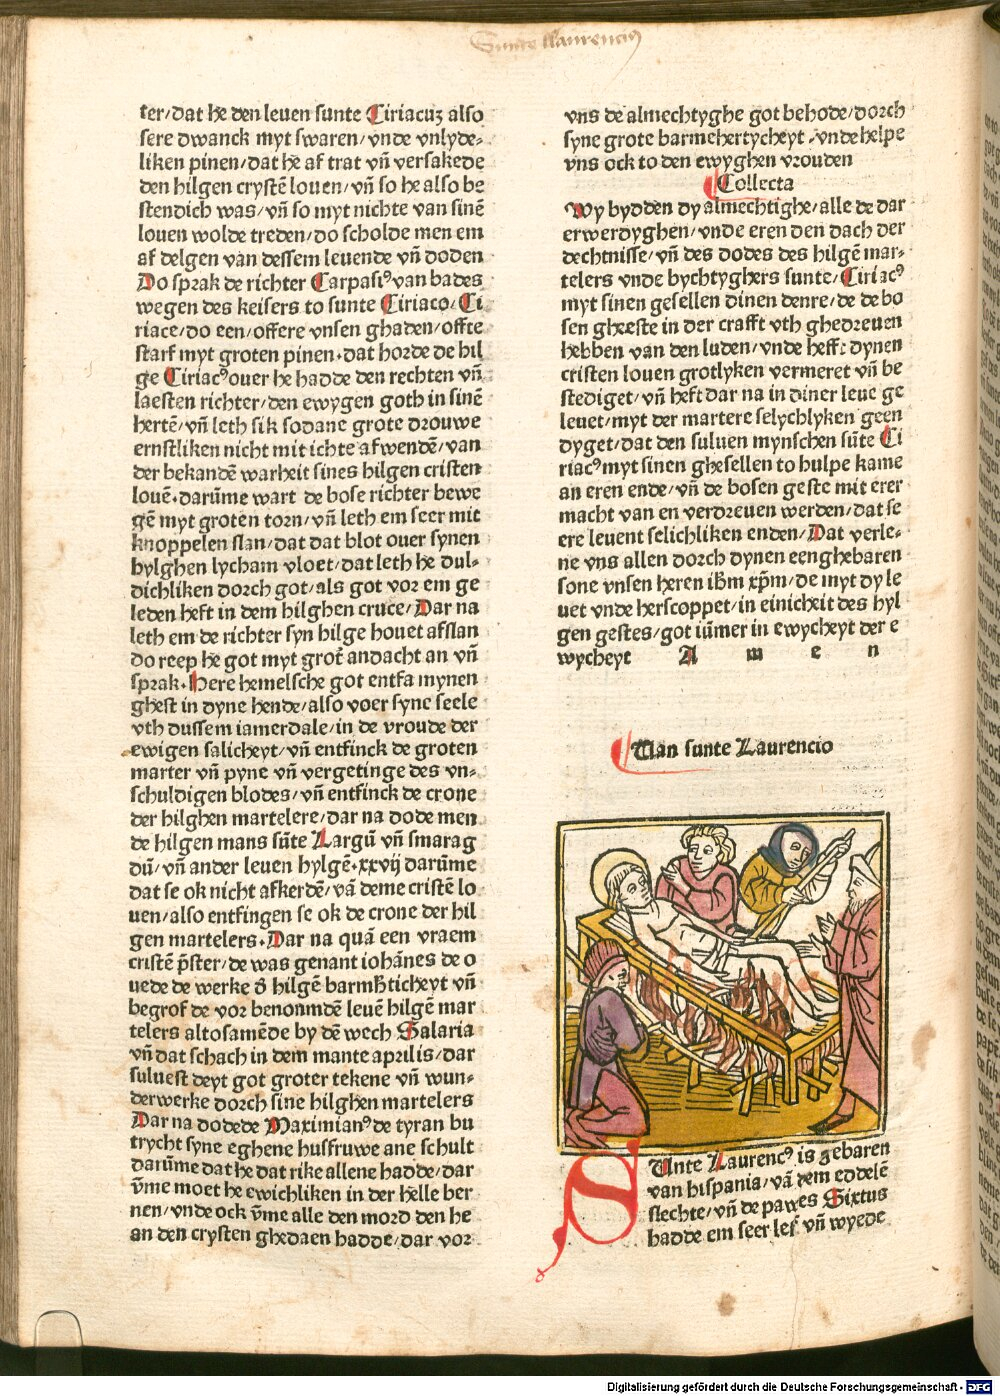 Sunte Laurencius
ter/dat he den leuen sunte Ciriacuʒ also
sere dwanck myt swaren/vnde vnlyde⸗
liken pinen/dat he af trat vñ versakede
den hilgen crystē louen/vñ so he also be
stendich was/vñ so myt nichte van sinē
louen wolde treden/do scholde men em
af delgen van dessem leuende vñ doden
Do sprak de richter Carpasiꝰ van bades
wegen des keisers to sunte Ciriaco/Ci
riace/do een/offere vnsen ghaden/offte
starf myt groten pinen.dat horde de hil
ge Ciriacꝰ ouer he hadde den rechten vñ
laesten richter/den ewygen goth in sinē
hertē/vñ leth sik sodane grote drouwe
ernstliken nicht mit ichte afwendē/van
der bekandē warheit sines hilgen cristen
louē.darūme wart de bose richter bewe
gē myt groten torn/vñ leth em seer mit
knoppelen slan/dat dat blot ouer synen
hylghen lycham vloet/dat leth he dul⸗
dichliken dorch got/als got vor em ge
leden heft in dem hilghen cruce/Dar na
leth em de richter syn hilge houet afslan
do reep he got myt grot andacht an vñ
sprak.Here hemelsche got entfa mynen
ghest in dyne hende/also voer syne seele
vth dussem iamerdale/in de vroude der
ewigen salicheyt/vñ entfinck de groten
marter vñ pyne vñ vergetinge des vn⸗
schuldigen blodes/vñ entfinck de crone
der hilghen martelere/dar na dode men
de hilgen mans sūte Largū vñ smarag
dū/vñ ander leuen hylgē.xxvij darūme
dat se ok nicht afkerdē/vā deme cristē lo
uen/also entfingen se ok de crone der hil
gen martelers.Dar na quā een vraem
cristē p̄ster/de was genant iohānes de o
uede de werke d̄ hilgē barmh̄ticheyt vñ
begrof de vor benomdē leuē hilgē mar
telers altosamēde by dē wech Salaria
vñ dat schach in dem mante aprilis/dar
suluest deyt got groter tekene vñ wun⸗
derwerke dorch sine hilghen martelers
Dar na dodede Maximianꝰ de tyran bu
trycht syne eghene husfruwe ane schult
darūme dat he dat rike allene hadde/dar
v̄me moet he ewichliken in der helle ber
nen/vnde ock v̄me alle den mord den he
an den crysten ghedaen hadde/dar vor
vns de almechtyghe got behode/dorch
syne grote barmehertycheyt.vnde helpe
vns ock to den ewyghen vrouden
Collecta
Wy bydden dy almechtighe/alle de dar
erwerdyghen/vnde eren den dach der
dechtnisse/vñ des dodes des hilgē mar⸗
telers vnde bychtyghers sunte/Ciriacꝰ
myt sinen gesellen dinen denre/de de bo
sen gheeste in der crafft vth ghedreuen
hebben van den luden/vnde heft dynen
cristen louen grotlyken vermeret vñ be
stediget/vñ heft dar na in diner leue ge
leuet/myt der martere selychlyken geen
dyget/dat den suluen mynschen sūte Ci
riacꝰ myt sinen ghesellen to hulpe kame
an eren ende/vñ de bosen geste mit erer
macht van en verdreuen werden/dat se
ere leuent selichliken enden/Dat verle⸗
ne vns allen dorch dynen eenghebaren
sone vnsen heren ihm̄ xp̄m/de myt dy le
uet vnde herscoppet/in einicheit des hyl
gen gestes/got iūmer in ewycheyt der e
wycheyt A m e n
Uan sunte Laurencio
SUnte Laurencꝰ is gebaren
van hispania/vā dem eddelē
slechte/vñ de pawes Sixtus
hadde em seer lef vñ wyede
Digitalisierung gefördert durch die Deutsche Forschungsgemeinschaft - DFG